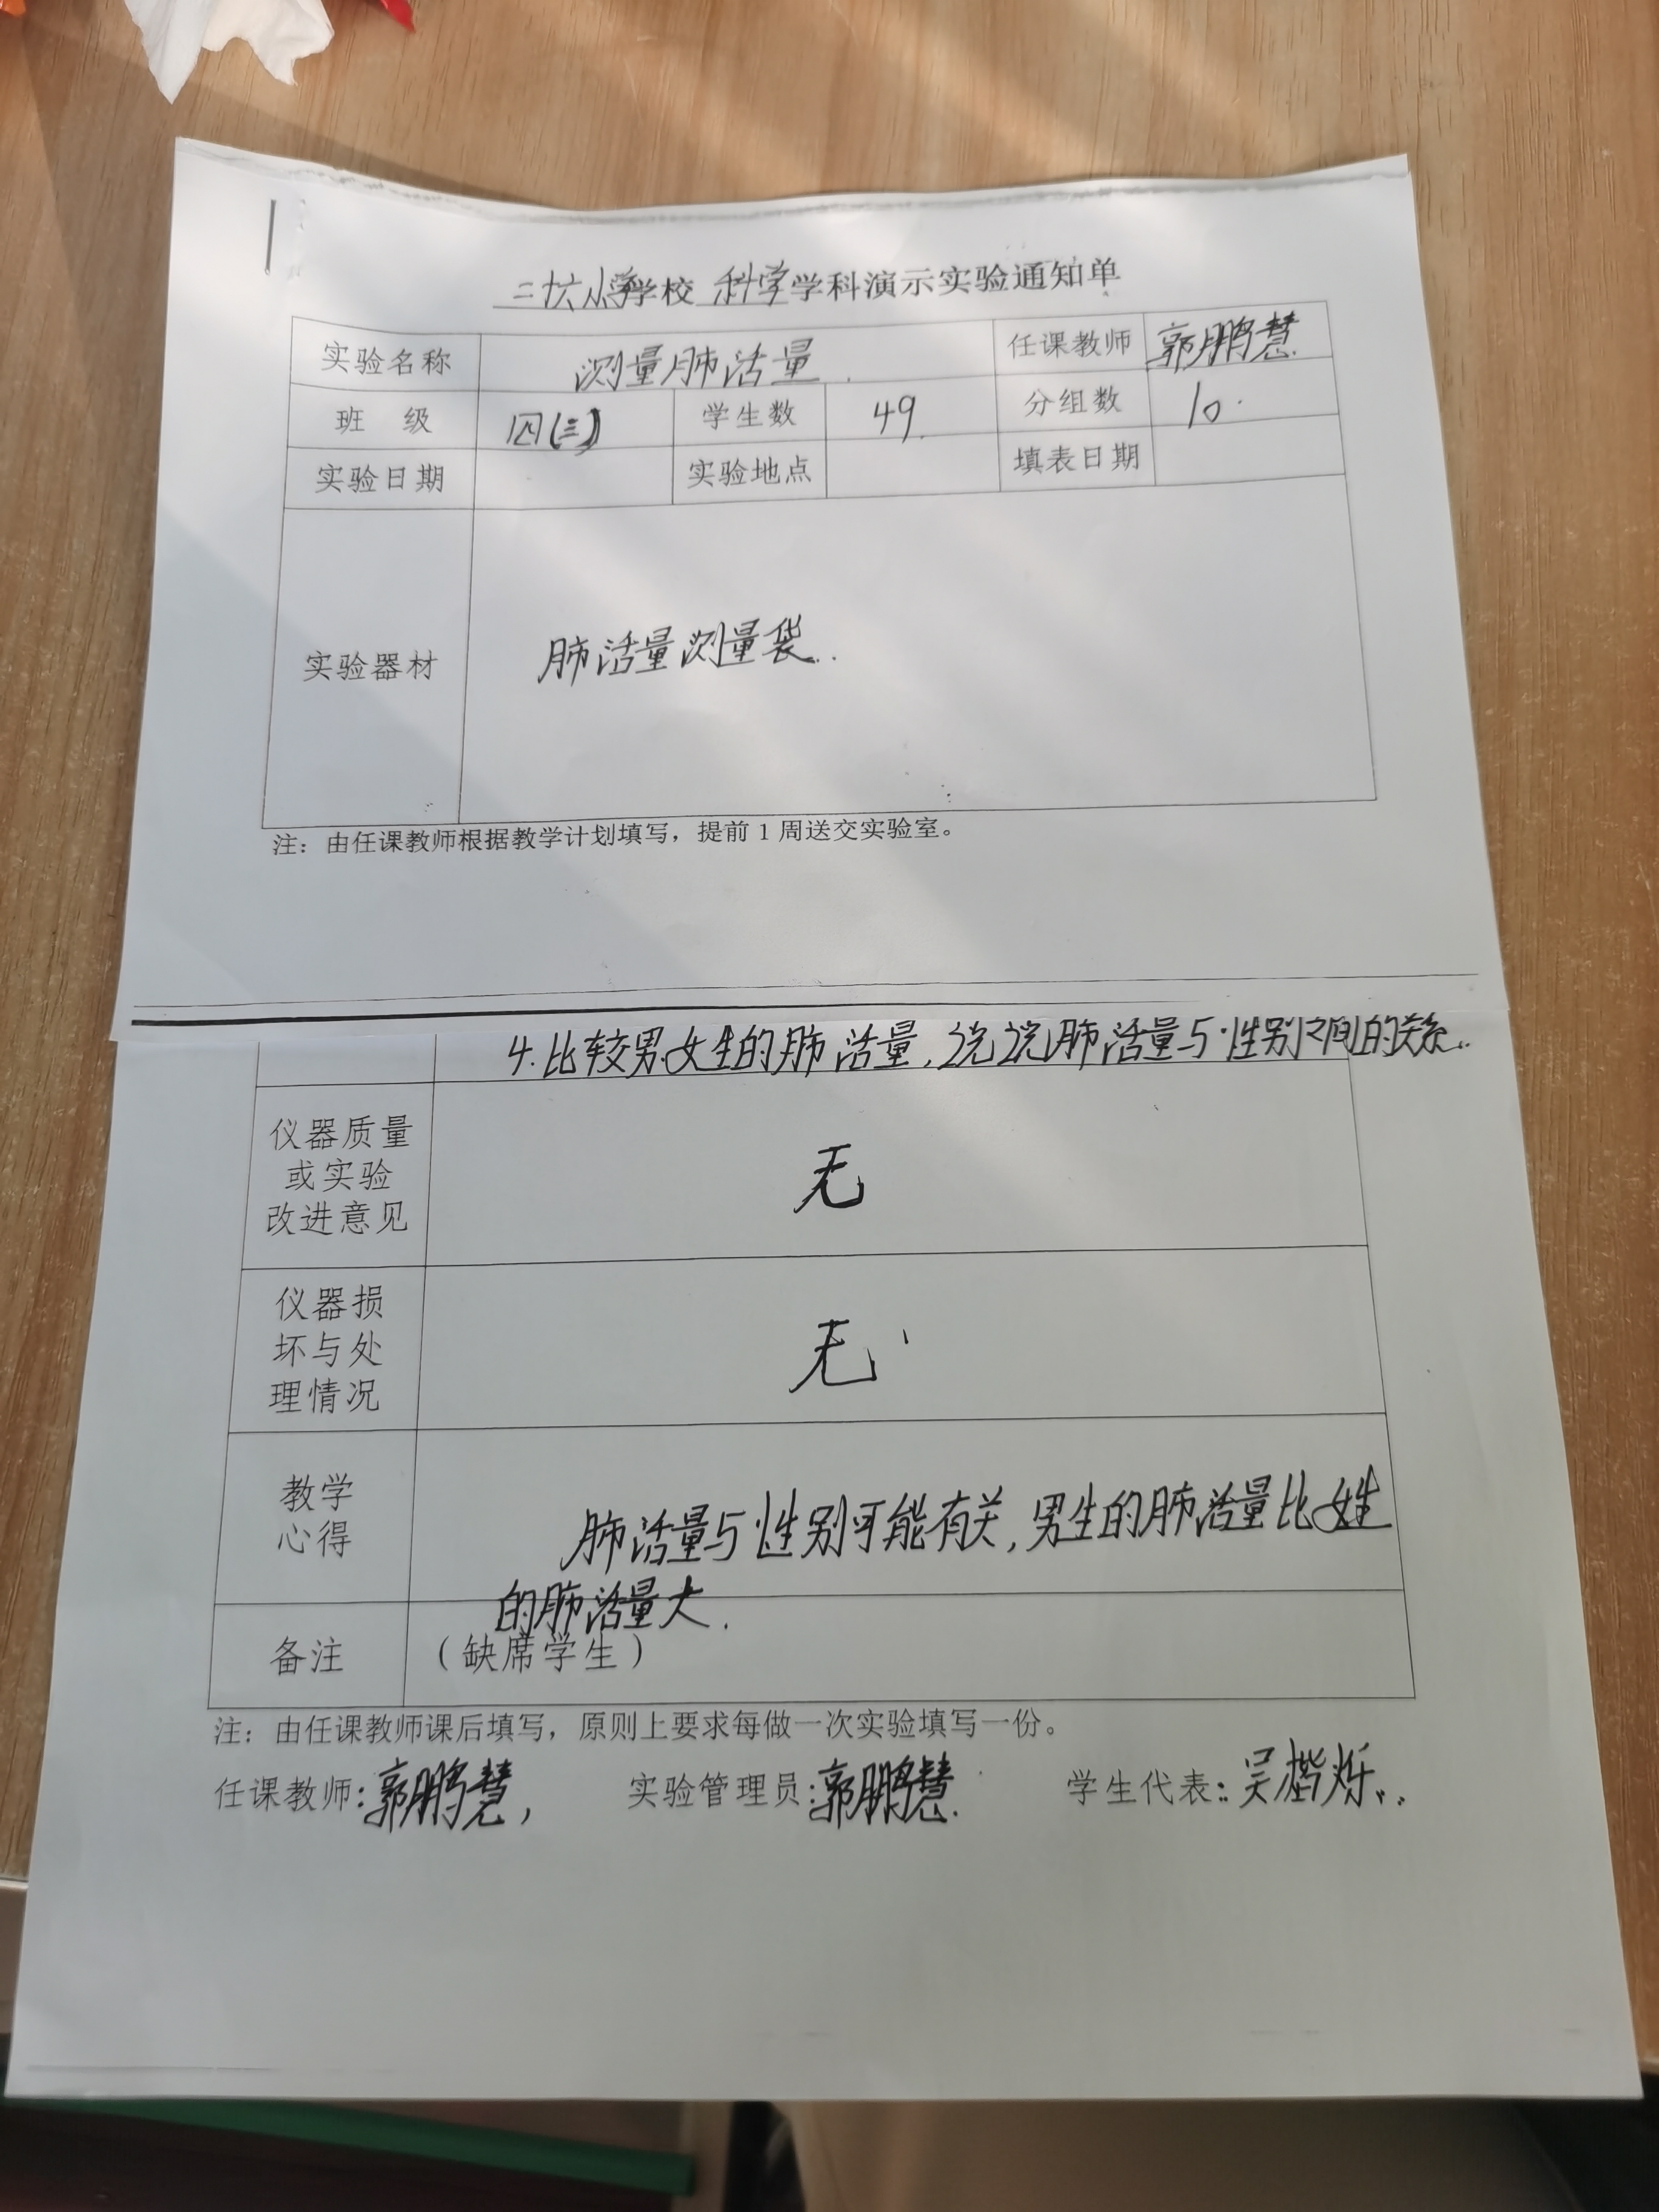 二十六小学学校 科学学科演示实验通知单
实验名称 测量肺活量 任课教师 郭鹏慧
班 级 四(三) 学生数 49 分组数 10
实验日期 实验地点 填表日期
实验器材 肺活量测量袋
注：由任课教师根据教学计划填写，提前 1 周送交实验室。
4.比较男女生的肺活量，说说肺活量与性别之间的关系.
仪器质量
或实验
改进意见
无
仪器损
坏与处
理情况
无
教学
心得
肺活量与性别可能有关，男生的肺活量比女生
的肺活量大.
备注 （缺席学生）
注：由任课教师课后填写，原则上要求每做一次实验填写一份。
任课教师：郭鹏慧 实验管理员：郭鹏慧 学生代表：吴楷烁